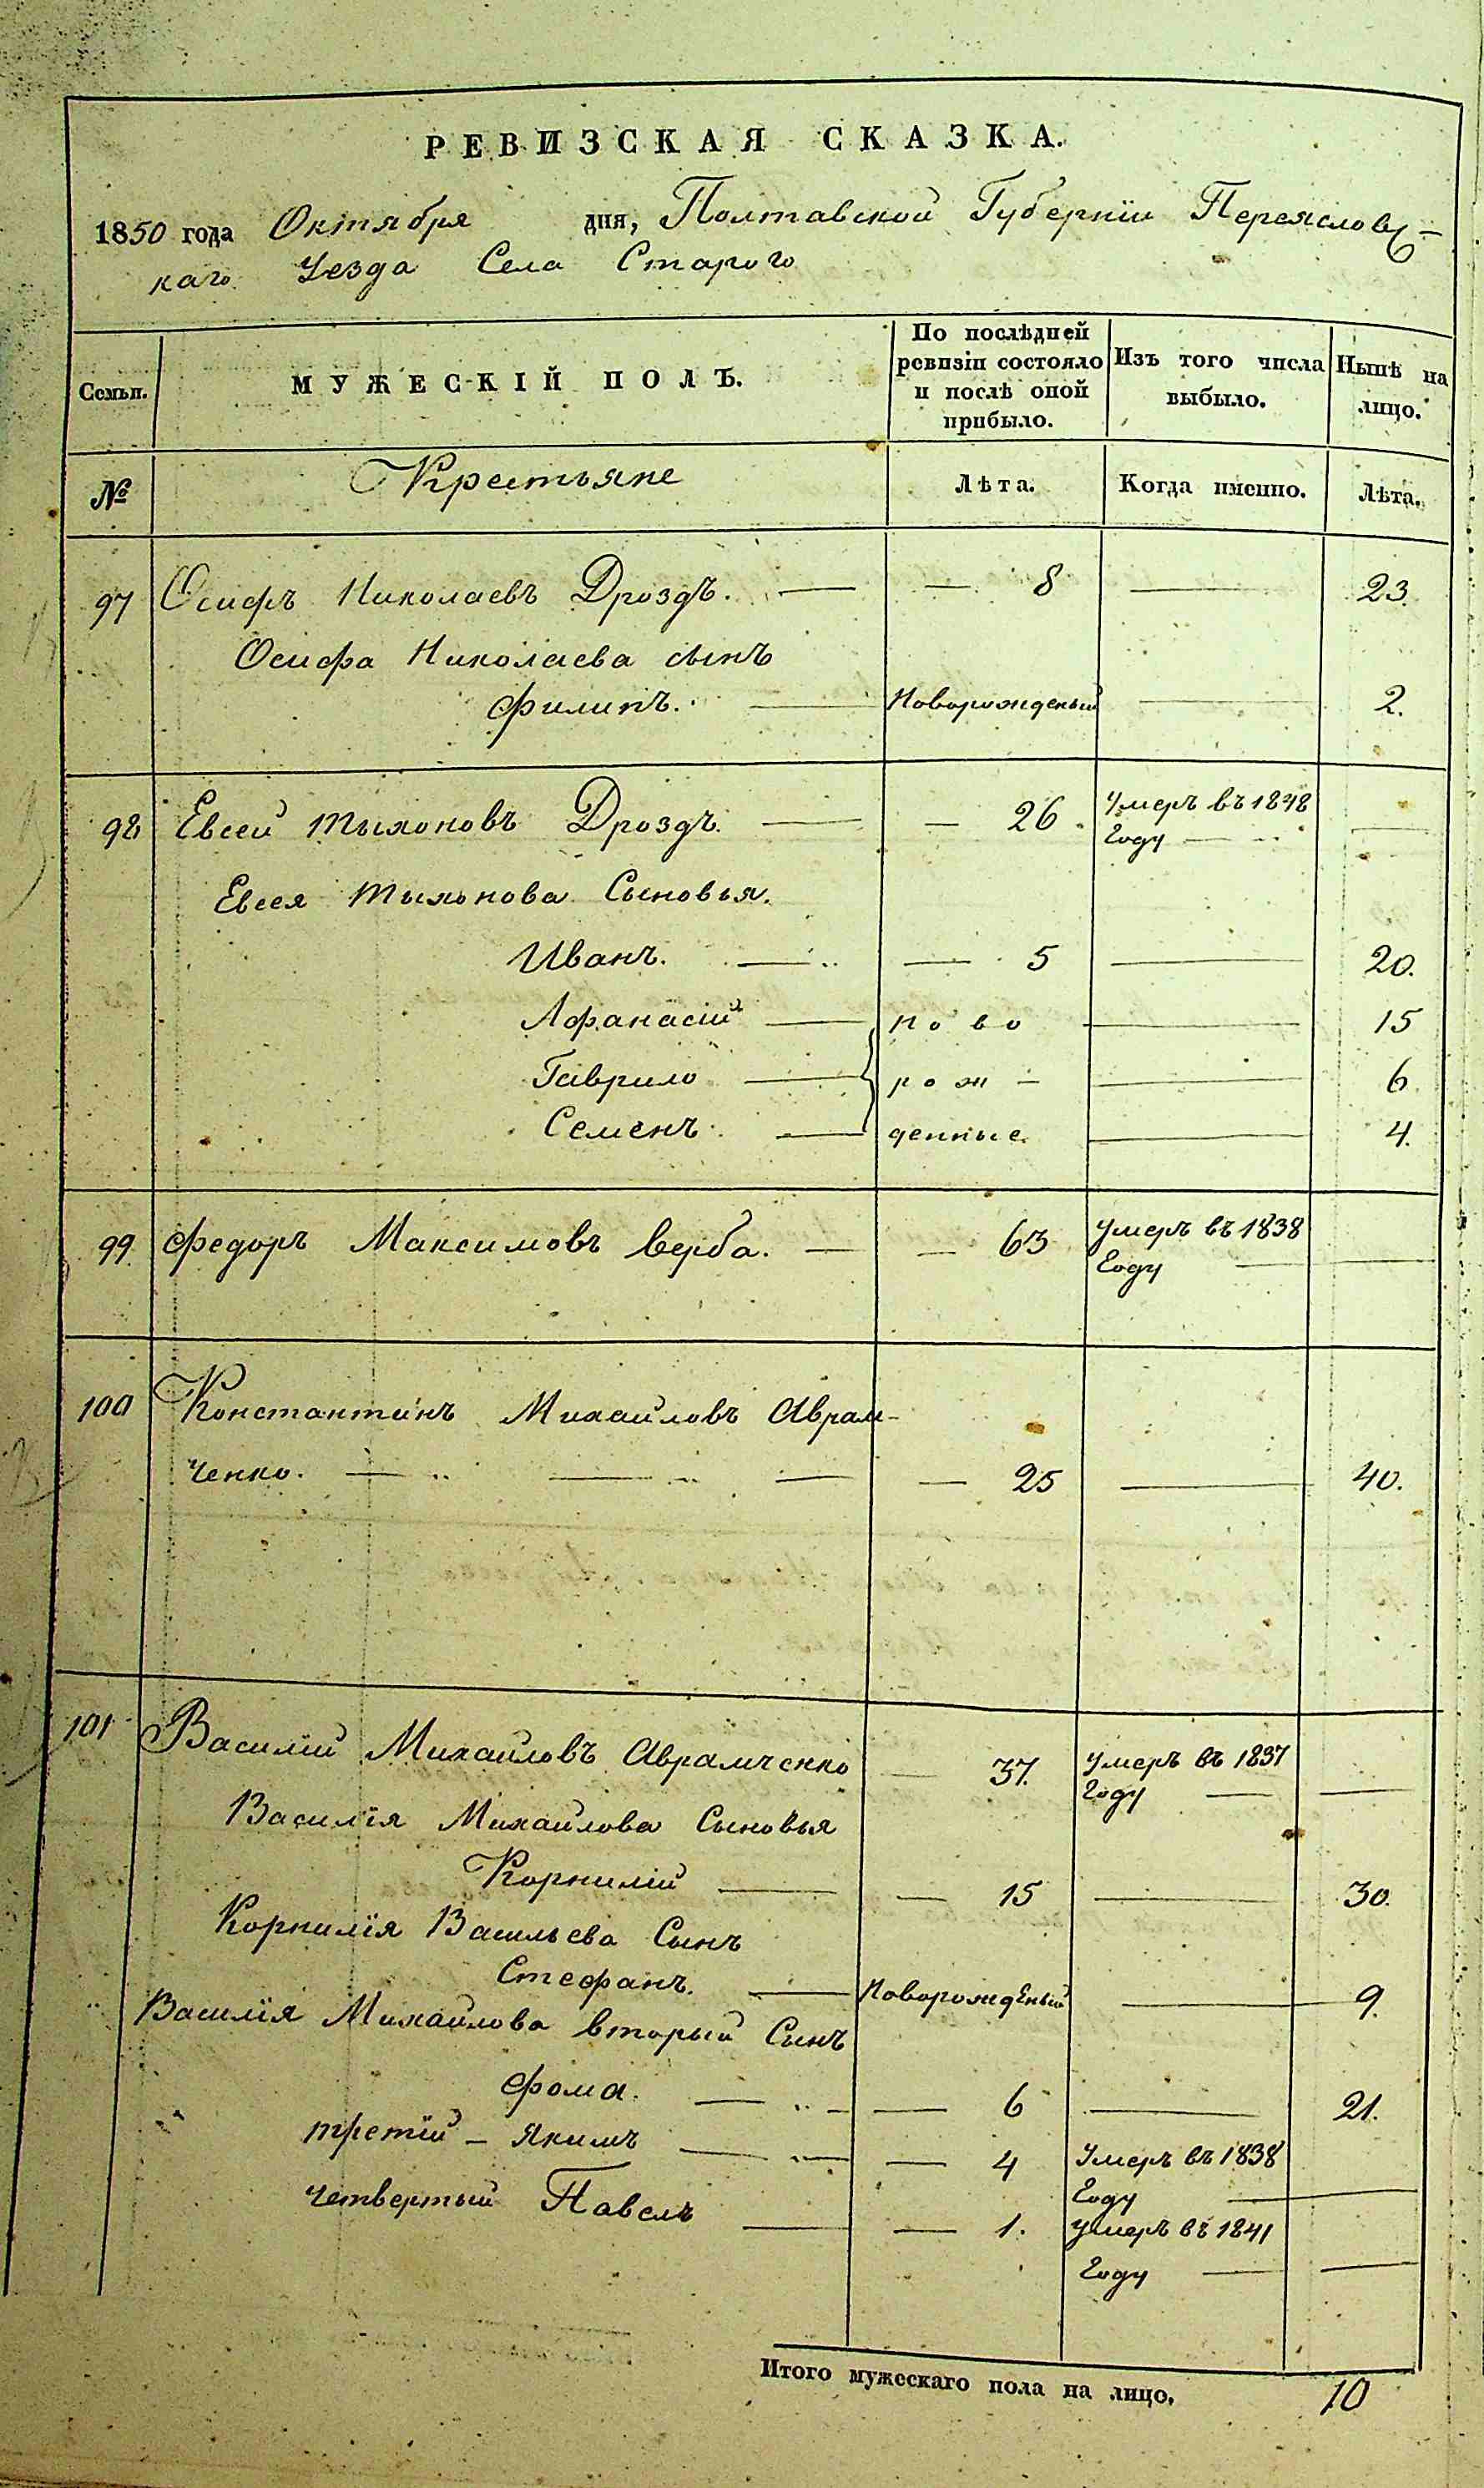 РЕВИЗСКАЯ СКАЗКА.
1850 года Октября дня, Полтавской Губерніи Переяславс-
каго Уезда Села Старого
Семьи. МУЖЕСКІЙ ПОЛЪ. По послѣдней ревизіи состояло и послѣ оной прибыло. Изъ того числа выбыло. Нынѣ на лицо.
№ Крестьяне Лѣта. Когда именно. Лѣта.
97 Осифъ Николаевъ Дроздъ. — — 8 — 23.
Осифа Николаева сынъ
Филипъ. — Новорожденый — 2.
98 Евсей Тихоновъ Дроздъ. — — 26. Умеръ въ 1848 Году — —
Евсея Тихонова Сыновья.
Иванъ. — — 5 — 20.
Афанасій — ново — 15
Гаврило — рож- — 6
Семенъ. — денные. — 4.
99. Федоръ Максимовъ Верба. — — 63 Умеръ въ 1838 Году — —
100 Константинъ Михайловъ Аврам-
ченко. — — — — 25 — 40.
101 Василій Михайловъ Аврамченко — 37. Умеръ въ 1837 Году — —
Василія Михайлова Сыновья
Корнилій — — 15 — 30.
Корнилія Васильева Сынъ
Стефанъ. — Новорожденый — 9.
Василія Михайлова вторый Сынъ
Фома. — — 6 — 21.
третій - Якимъ — — 4 Умеръ въ 1838 Году —
четвертый Павелъ — — 1. Умеръ въ 1841 Году — —
Итого мужескаго пола на лицо, 10